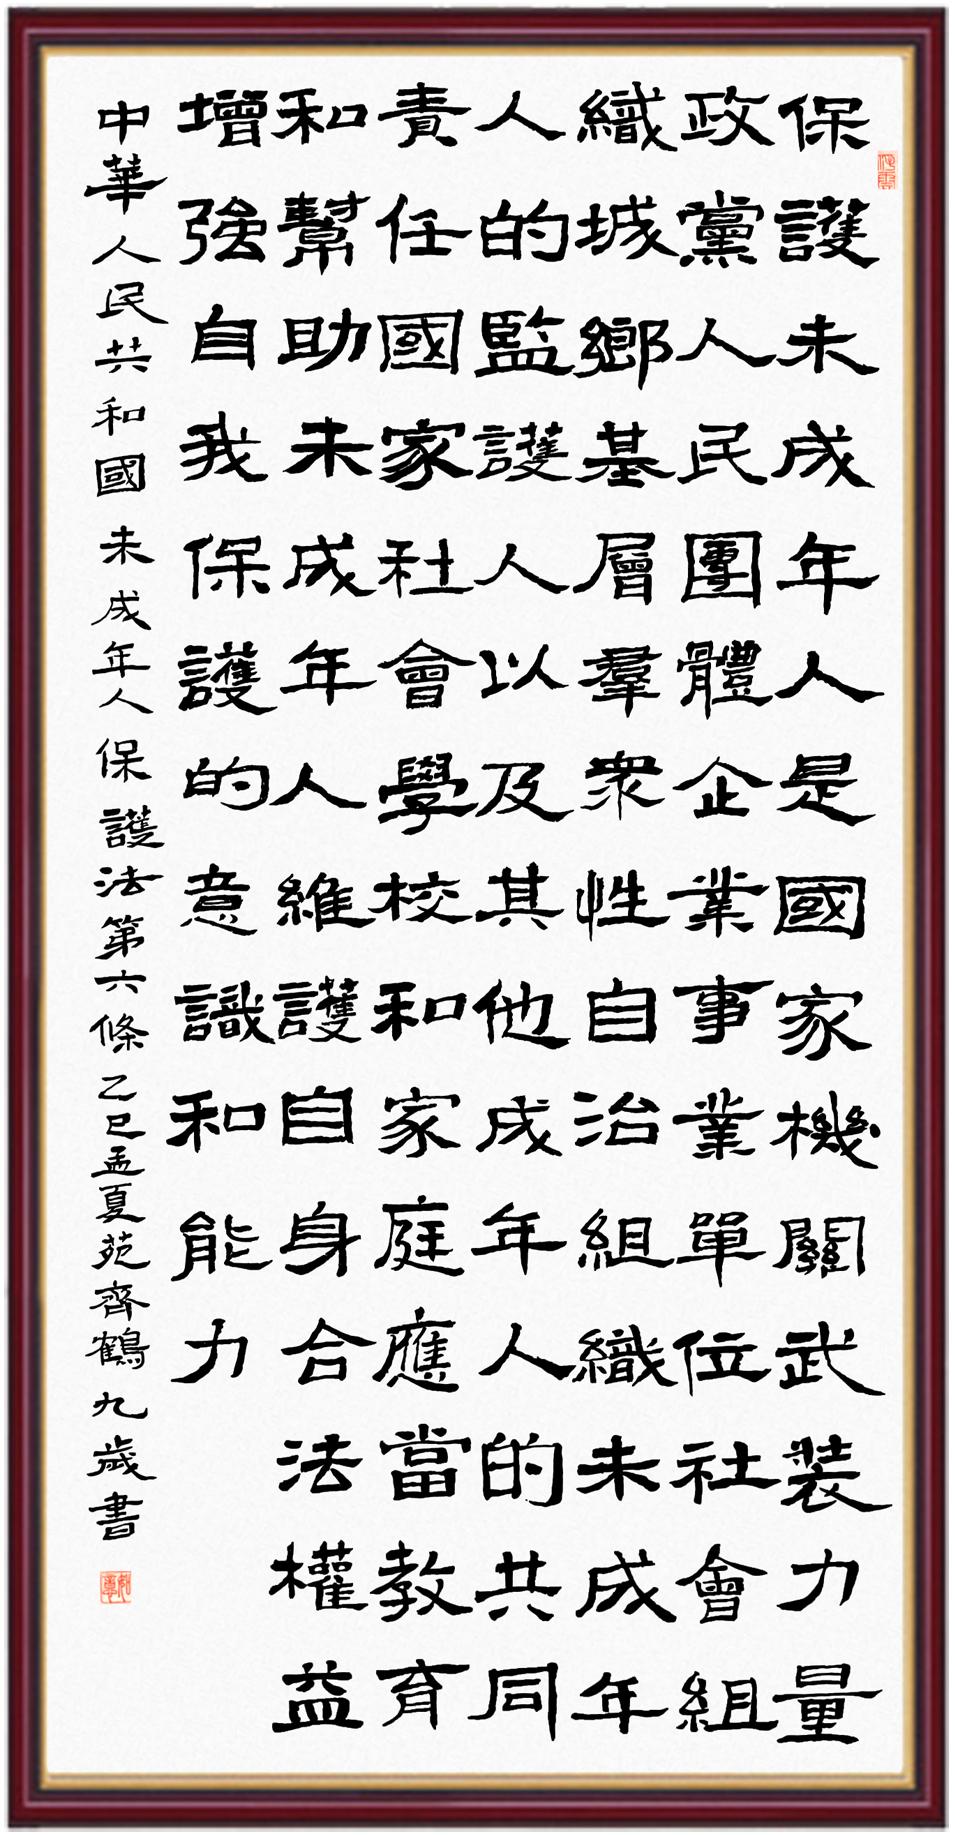 保護未成年人是國家機關武装力量
政黨人民團體企業事業單位社會組
織城鄉基層羣衆性自治組織未成年
人的監護人以及其他成年人的共同
責任國家社會學校和家庭應當教育
和幫助未成年人維護自身合法權益
增強自我保護的意識和能力
中華人民共和國未成年人保護法第六條乙巳孟夏苑齊鶴九歲書